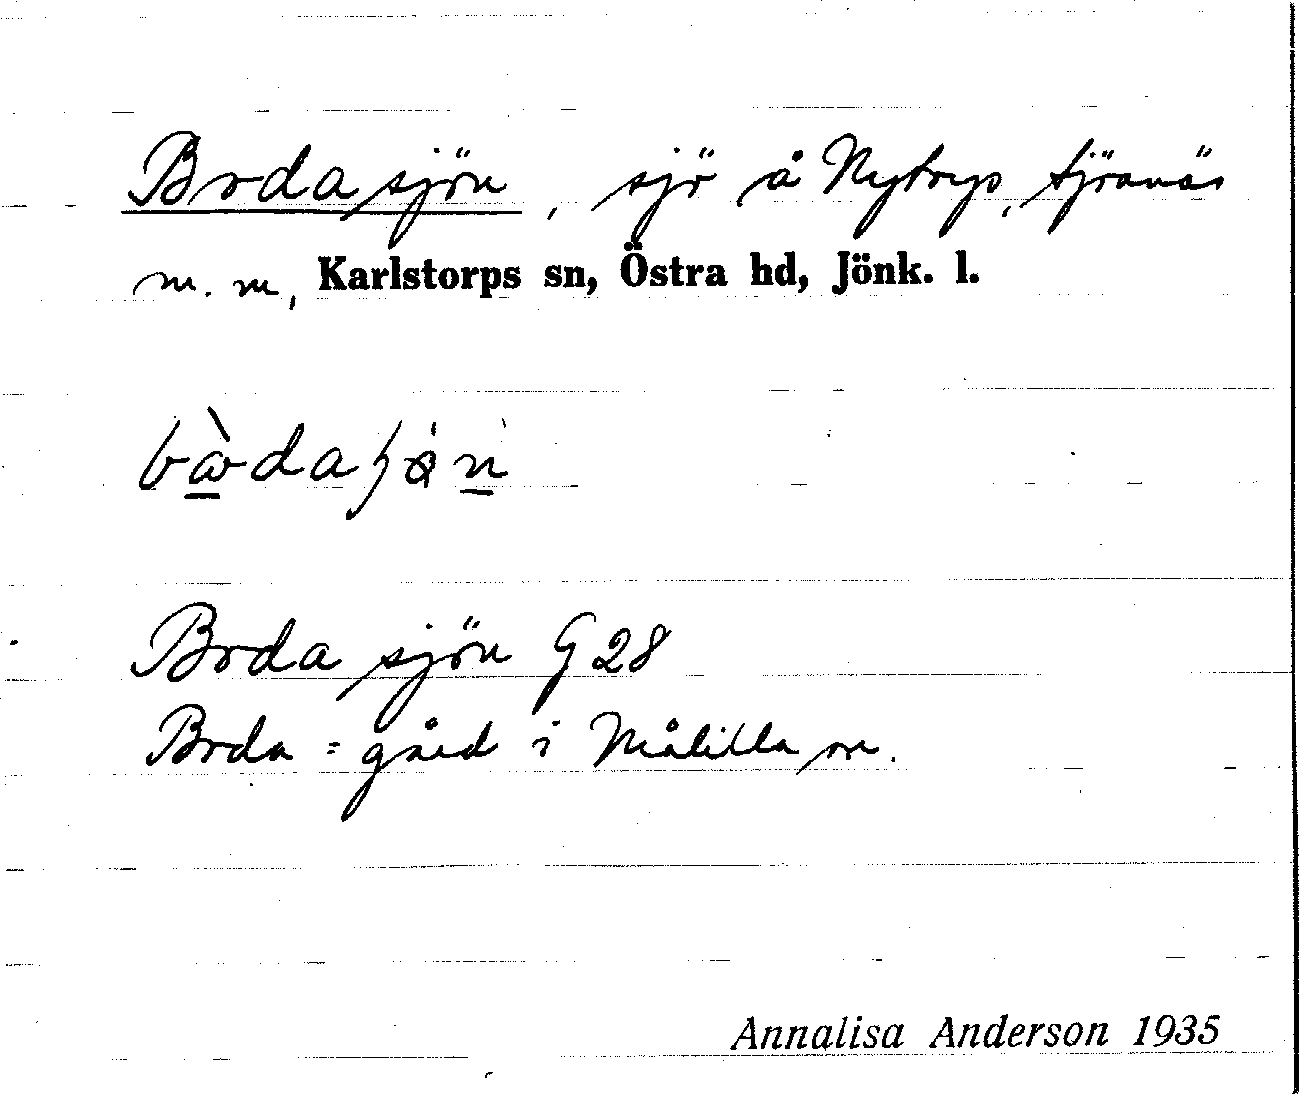 Bodasjön, sjö å Nytorp, Sjöanäs
m. m, Karlstorps sn, Östra hd, Jönk. l.
Boda sjön G 28
Boda = gård i Målilla sn.
Annalisa Anderson 1935